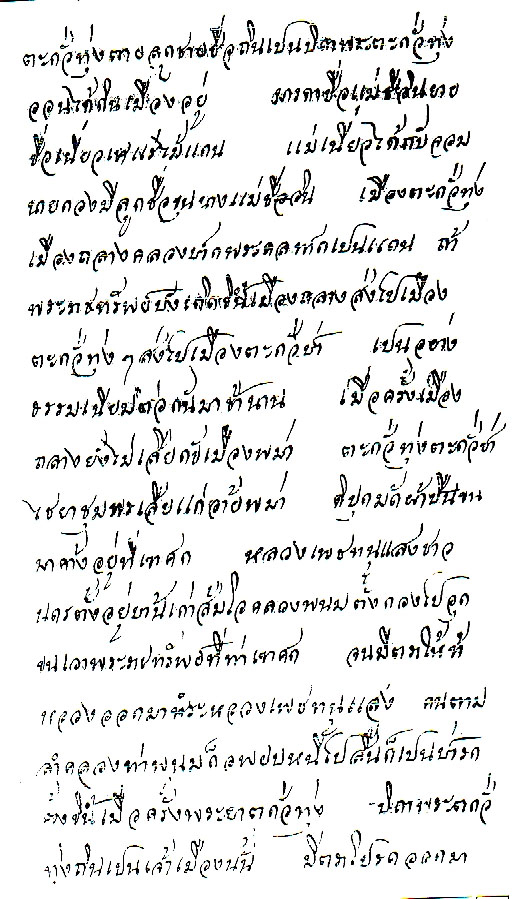 ตะกั่วทุ่งตายลูกชายชื่อถินเปนบิดาพระตะกั่วทุ่ง
ได้กินเมืองอยู่ มารดาชื่อแม่ชีจันยาย
ชื่อเนี่ยวเทศรีแม้แถน แม่เนี่ยวได้กับจอม
นายกองมีลูกชื่อขุนนางแม่ชื่ออิน เมืองตะกั่วทุ่ง
เมืองถลางคลองปากพระตลาดเปนแดน ถ้า
พระราชทรัพย์บังเกิดขึ้นเมืองถลางส่งไปเมือง
ตะกั่วทุ่ง ๆ ส่งไปเมืองตะกั่วป่า เปนอย่าง
ธรรมเนียมต่อกันมาช้านาน เมื่อครั้งเมือง
ถลางยังไม่เสียแก่เมืองพม่า ตะกั่วทุ่งตะกั่วป่า
ไชยาชุมพรเสียแก่อ้ายพม่า ดีปุกมัดผ้าปืนขน
มาค้างอยู่ที่เทศก หลวงเพชทนูแสงชาว
นครตั้งอยู่บ้านเก่าส้มโอคลองพนมตั้งกองไปลูก
ขนเอาพระราชทรัพย์ที่ท่าเทศก จนมีตราให้หา
หลวงออกมาหาหลวงเพชทนูแสง คนตาม
ลำคลองท่าพนมก็อพยบหนีไปสิ้นก็เปนป่ารก
ร้างขึ้นเมื่อครั้งพระยาตะกั่วทุ่ง บิดาพระตะกั่ว
ทุ่งถินเปนเจ้าเมืองนั้น มีตราโปรดออกมา